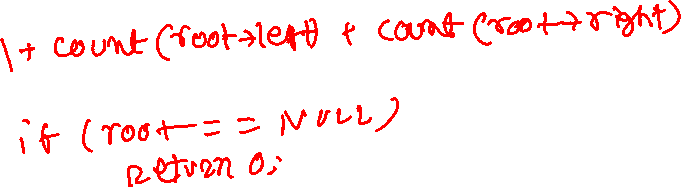 1+ count(root→left) + count(root→right)
if (root == NULL)
return 0;